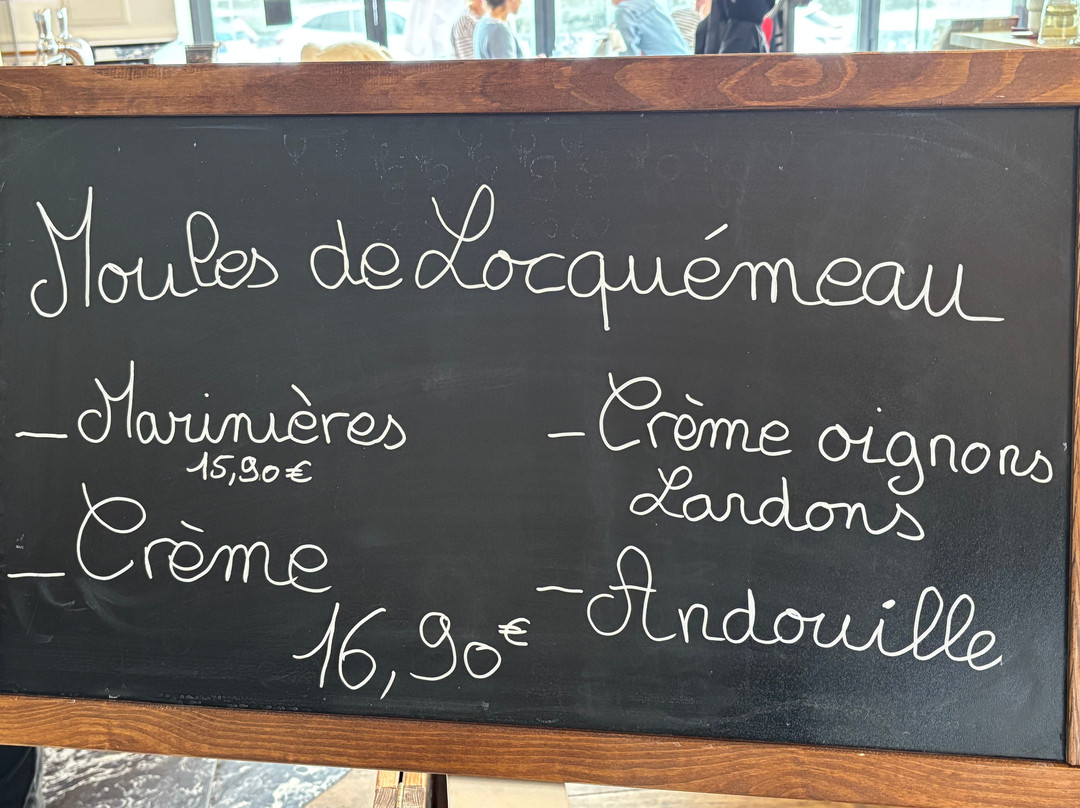 Moules de Locquémeau
- Marinières
15,90€
- Crème
16,90€
- Crème oignons
Lardons
- Andouille